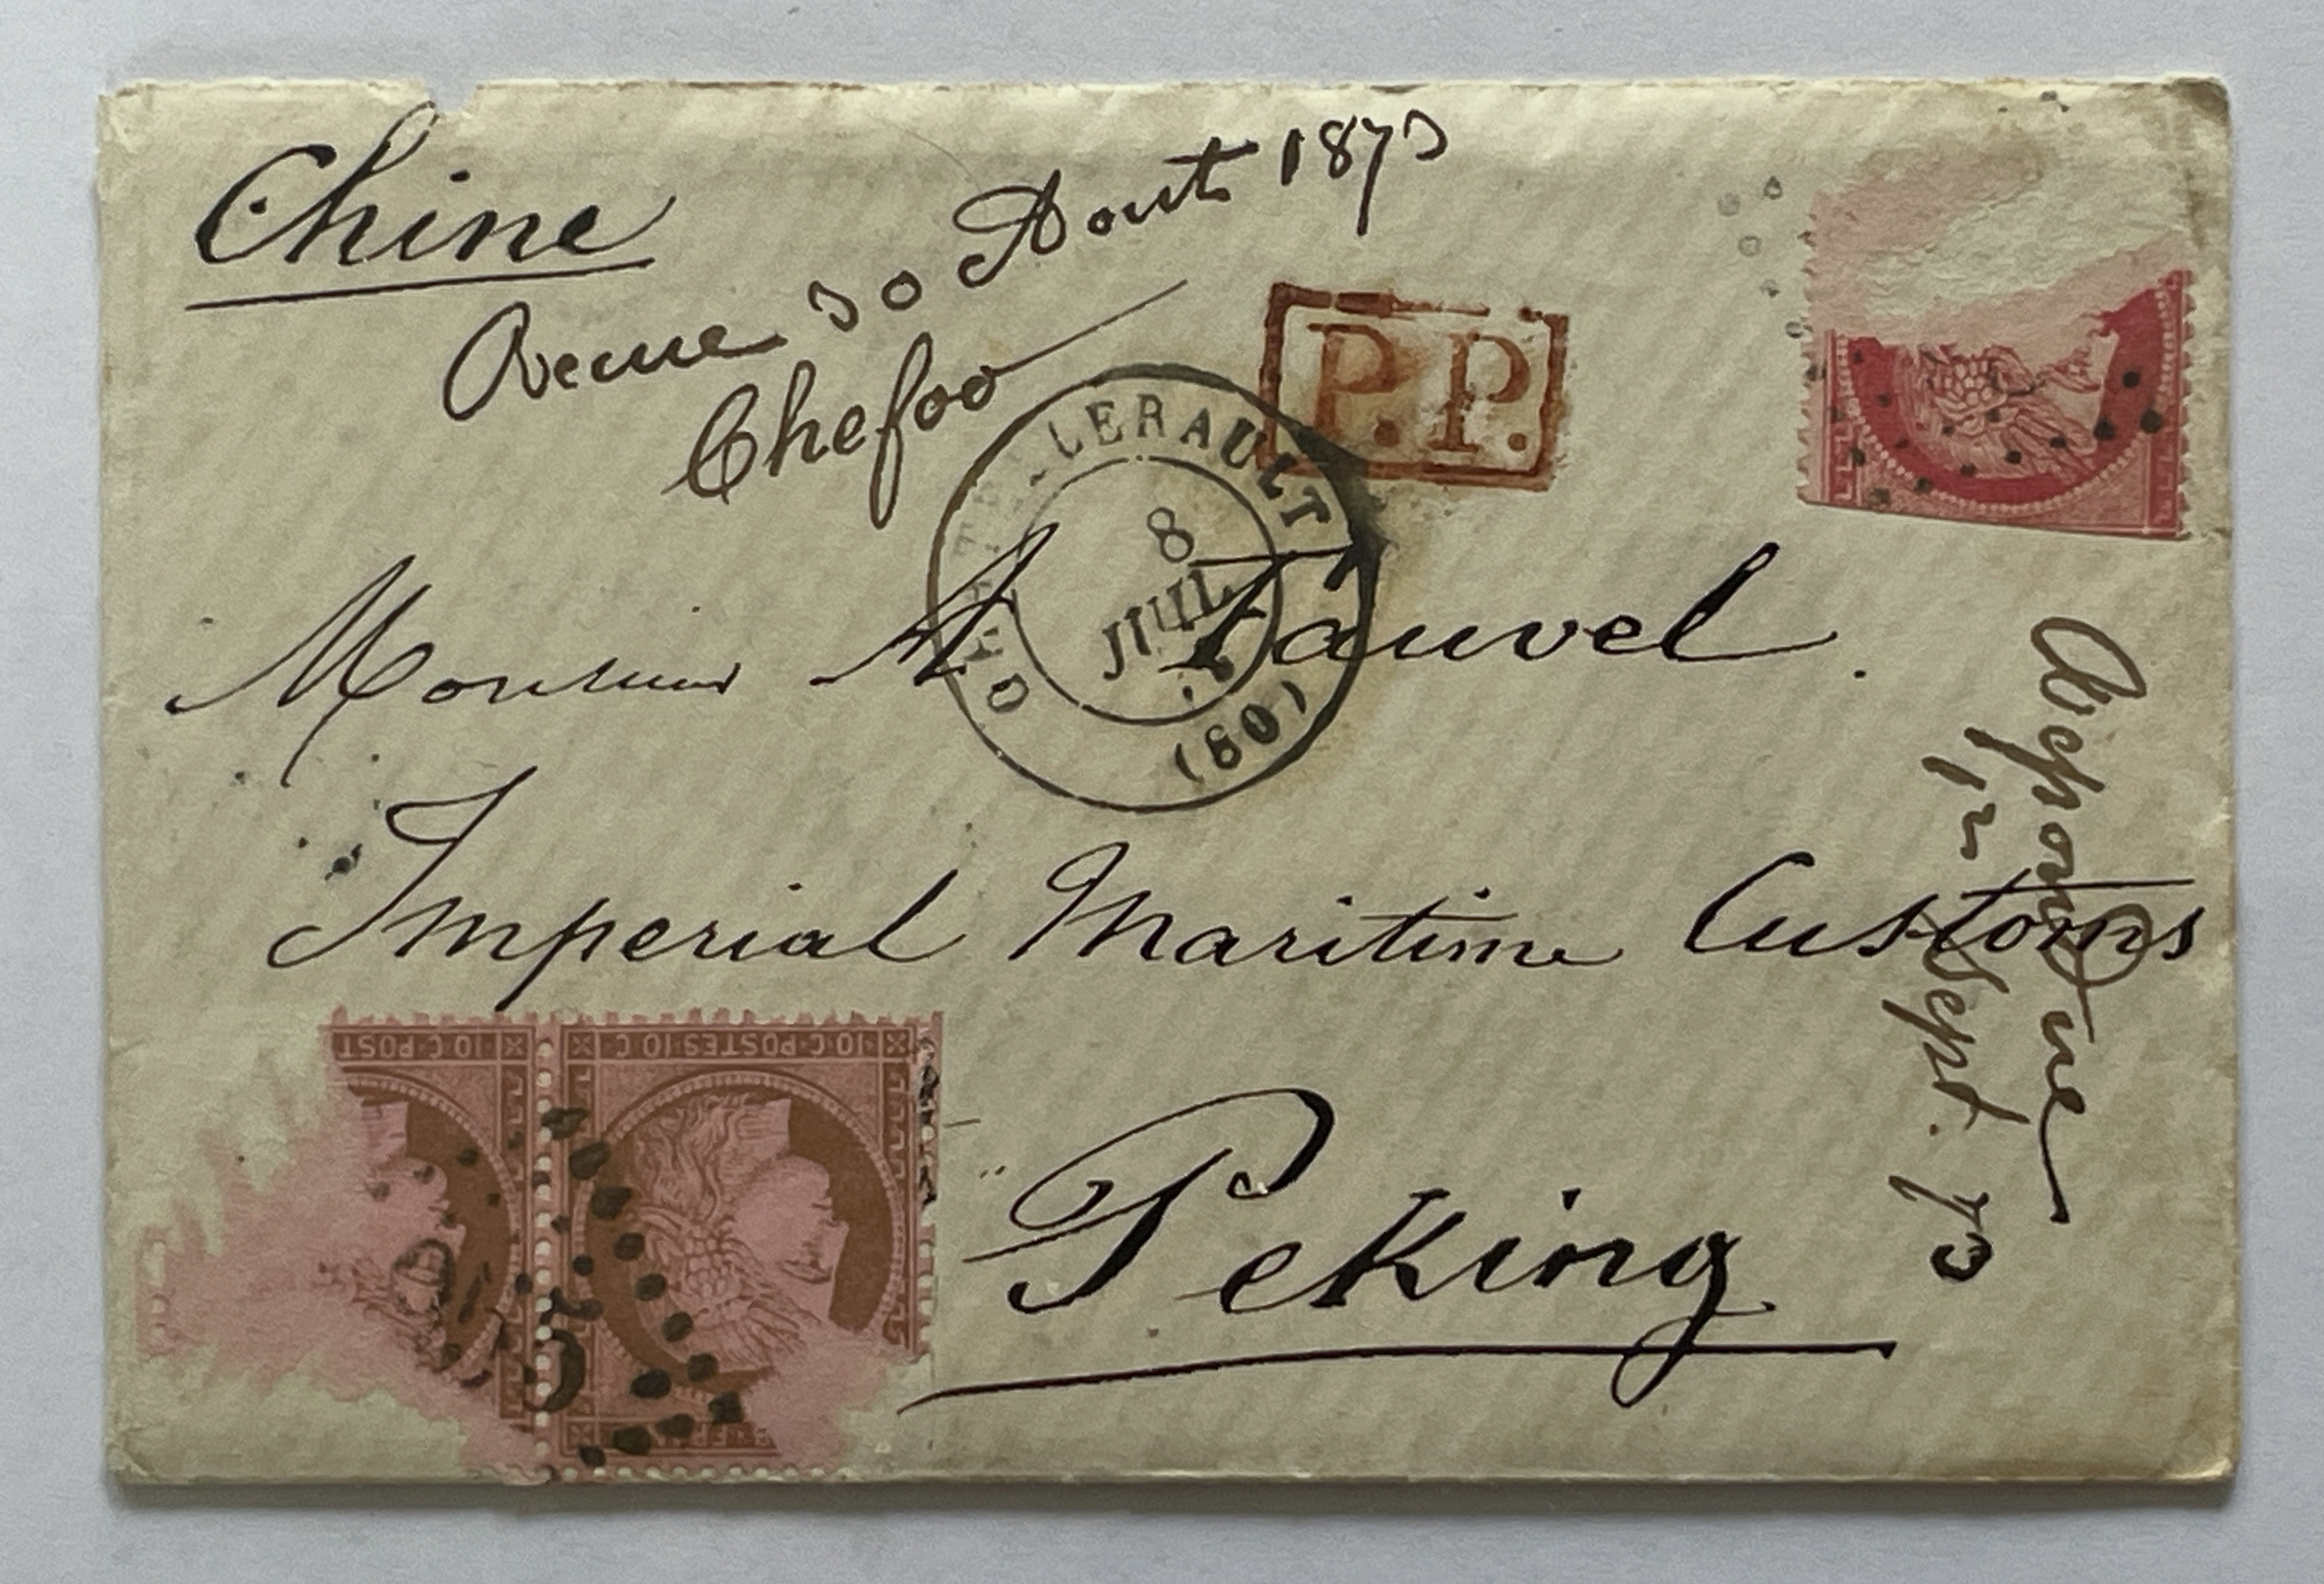 Chine
Recue 30 Aout 1873
Chefoo
P.P.
CHATELLERAULT
8
JUIL
(80)
Monsieur A Fauvel.
Imperial Maritime Customs
Peking
Repondue
12 Sept. 73
10·C·POST
10·C·POSTES·10·C
5